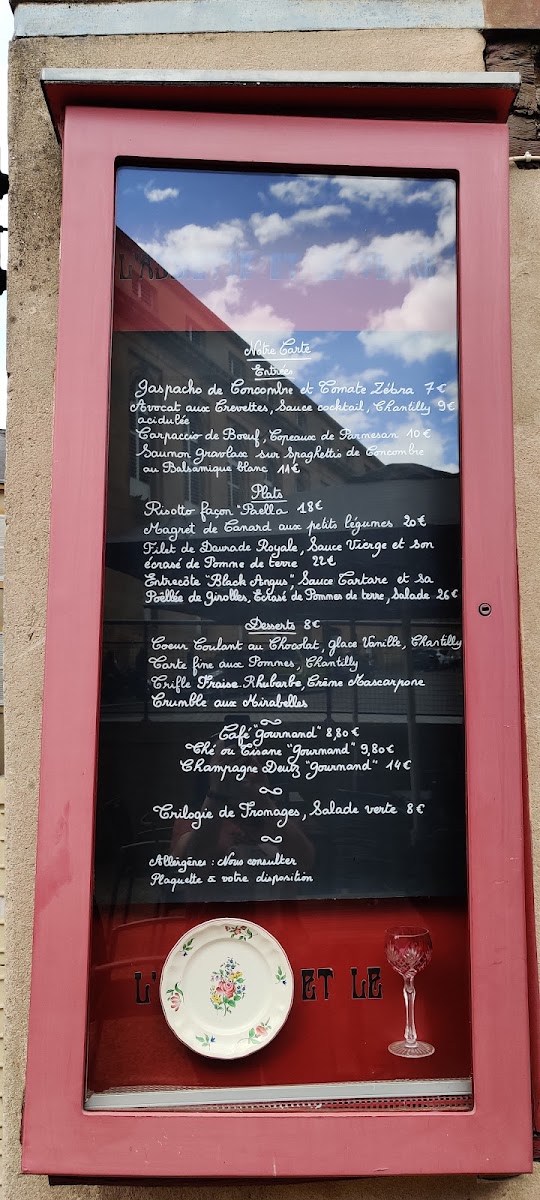 Notre Carte
Entrées
Gaspacho de Concombre et Tomate Zébra 7€
Avocat aux Crevettes, Sauce cocktail, Chantilly 9€
acidulée
Carpaccio de Boeuf, Copeaux de Parmesan 10€
Saumon Gravlax sur Spaghettis de Concombre
au Balsamique blanc 11€
Plats
Risotto façon "Paella 18€
Magret de Canard aux petits légumes 20€
Filet de Daurade Royale, Sauce Vierge et son
écrasé de Pomme de terre 22€
Entrecôte "Black Angus", Sauce Tartare et sa
Poêllée de Girolles, Ecrasé de Pommes de terre, Salade 26€
Desserts 8€
Coeur Coulant au Chocolat, glace Vanille, Chantilly
Tarte fine aux Pommes, Chantilly
Trifle Fraise-Rhubarbe, Crème Mascarpone
Crumble aux Mirabelles
Café "Gourmand" 8,80€
Thé ou Tisane "gourmand" 9,80€
Champagne Deutz "gourmand" 14€
Trilogie de Fromages, Salade verte 8€
Allergènes : Nous consulter
Plaquette à votre disposition
L' ET LE